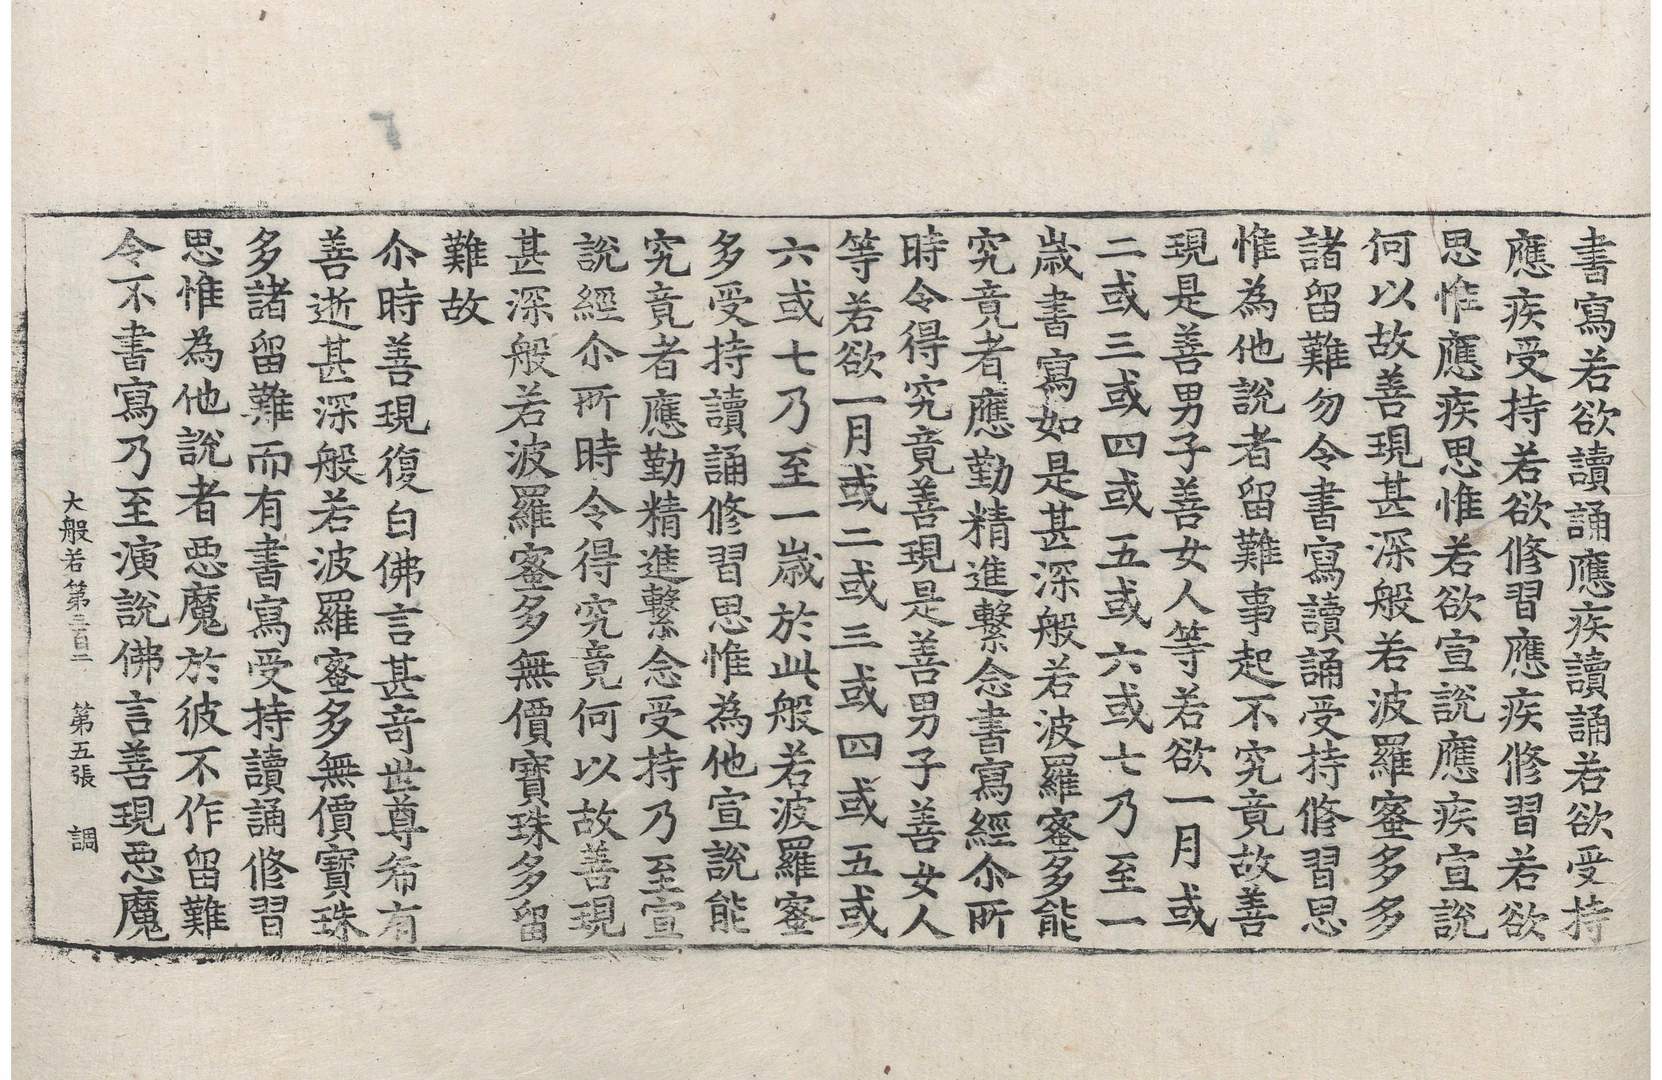 書寫若欲讀誦應疾讀誦若欲受持
應疾受持若欲修習應疾修習若欲
思惟應疾思惟若欲宣說應疾宣說
何以故善現甚深般若波羅蜜多多
諸留難勿令書寫讀誦受持修習思
惟為他說者留難事起不究竟故善
現是善男子善女人等若欲一月或
二或三或四或五或六或七乃至一
歲書寫如是甚深般若波羅蜜多能
究竟者應勤精進繫念書寫經尒所
時令得究竟善現是善男子善女人
等若欲一月或二或三或四或五或
六或七乃至一歲於此般若波羅蜜
多受持讀誦修習思惟為他宣說能
究竟者應勤精進繫念受持乃至宣
說經尒所時令得究竟何以故善現
甚深般若波羅蜜多無價寶珠多留
難故
尒時善現復白佛言甚奇世尊希有
善逝甚深般若波羅蜜多無價寶珠
多諸留難而有書寫受持讀誦修習
思惟為他說者惡魔於彼不作留難
令不書寫乃至演說佛言善現惡魔
大般若第三百二 第五張 調